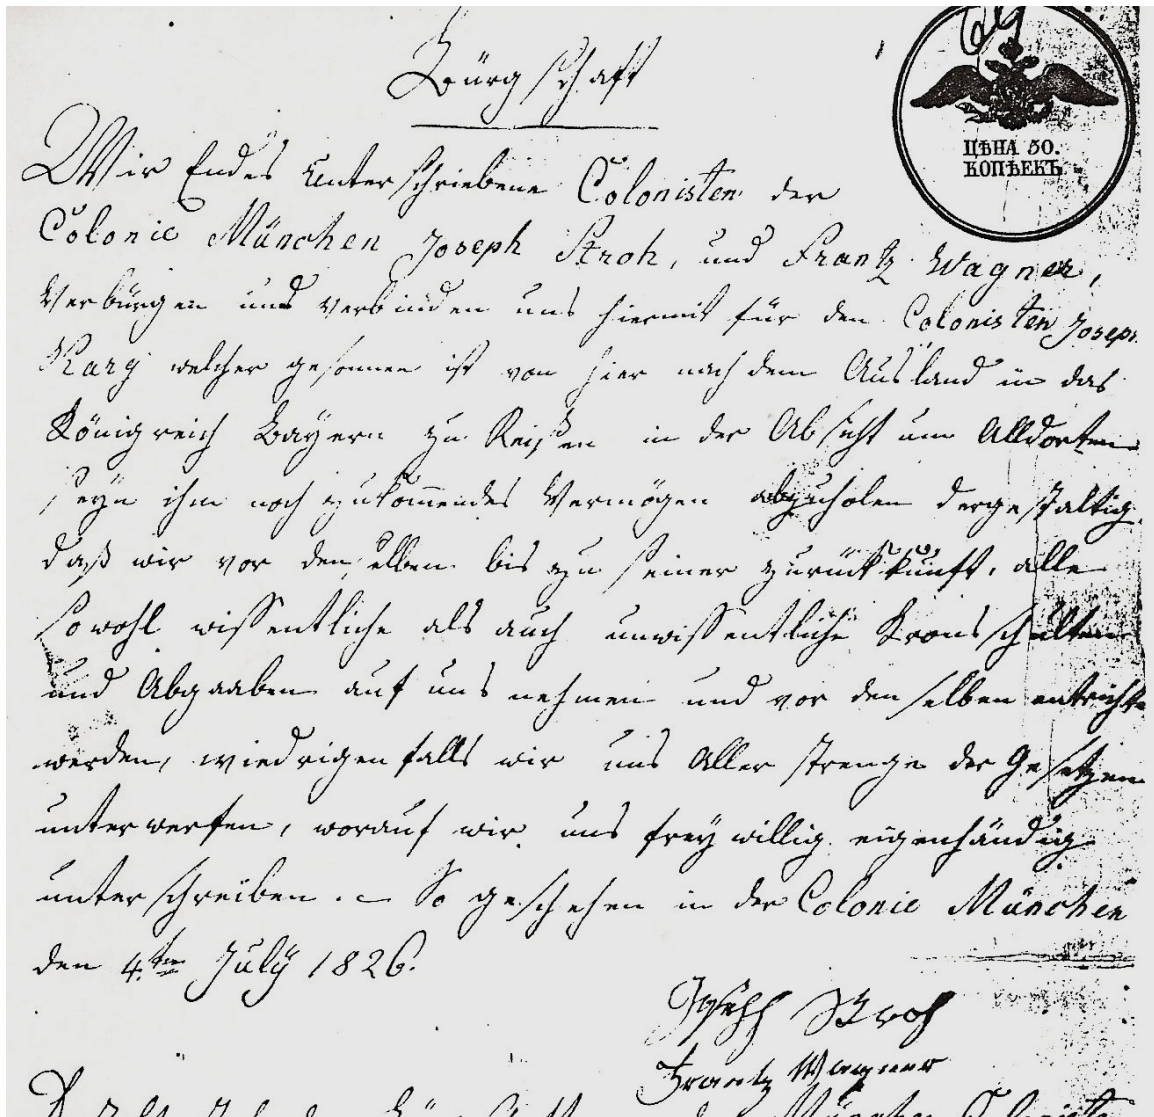 Bürgschaft
ЦѢНА 50.
КОПѢЕКЪ
Wir Endes Unterschriebene Colonisten der
Colonie München Joseph Stroh, und Frantz Wagner,
Verbürgen und verbinden uns hiermit für den Colonisten Joseph
Karg welcher gesonnen ist von hier nach dem Ausland in das
Königreich Bayern zu Reißen in der Absicht um Alldorten
seyn ihm noch zukom̄endes Vermögen abzuholen dergestaltig,
daß wir vor denselben bis zu seiner zurückkunft, alle
sowohl wissentliche als auch unwissentliche Kronsschulten
und Abgaaben auf uns nehmen und vor denselben entrichte
werden, wiedrigenfalls wir uns Aller strenge der Gesetzen
unterwerfen, worauf wir uns freywillig eigenhändig
unterschreiben. – So geschehen in der Colonie München
den 4.ten July 1826.
Joseph Stroh
Frantz Wagner